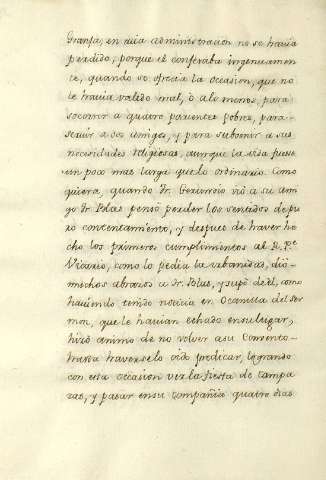 Granja, en cuia administracion no se havia
perdido, porque el confesaba ingenuamen
te, quando se ofrecia la occasion, que no
le havia valido mal, ò al o menos, para
socorrer a quatro parientes pobres, para
servir a sus amigos, y para subvenir a sus
necesidades religiosas, aunque la vida fuese
un poco mas larga que lo ordinario. Como
quiera quando fr. Gerundio viò a su ami
go fr. Blas pensò perder los sentidos de pu
ro contentamiento, y despues de haver he
cho los primeros cumplimientos al R. Pe.
Vicario, como lo pedia la urbanidad, diò
muchos abrazos a fr. Blas, y supò de el, como
haviendo tenido noticia en Ocanilla del Ser
mon, que le havian echado en su lugar,
hizò animo de no volver a su Convento
hasta haverselo oido predicar, logrando
con esta occasion ver la fiesta de Campa
zas, y pasar en su Compañia quatro dias